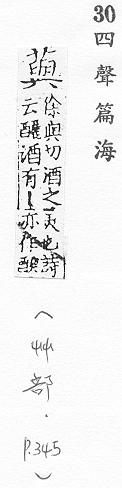 30 四聲篇海
藇
徐與切酒之美也詩
云釃酒有丨亦作
（艸部．P.345）